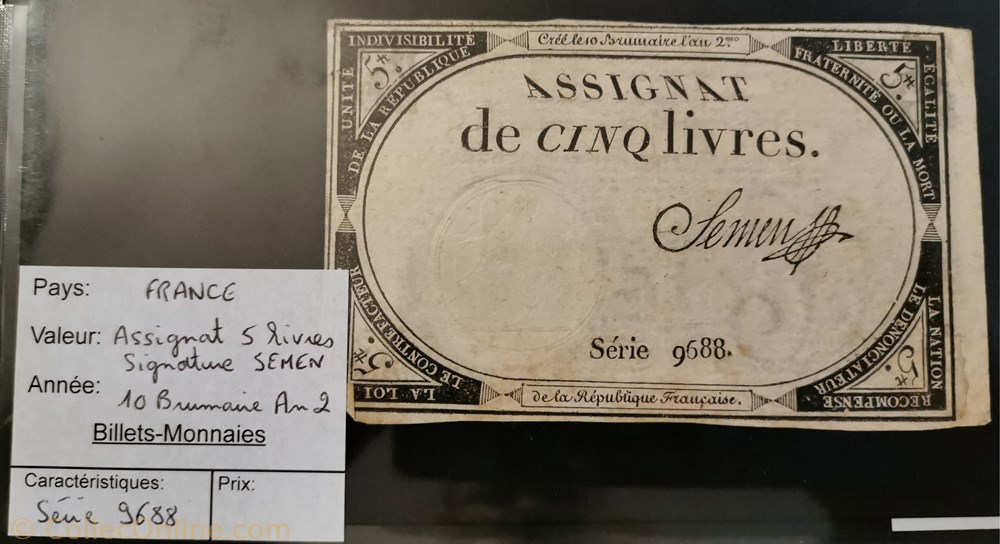 INDIVISIBILITÉ
Créé le 10 Brumaire l'an 2.me
LIBERTÉ
UNITÉ
5.tt
DE LA RÉPUBLIQUE
FRATERNITÉ OU LA MORT
5.tt
EGALITÉ
ASSIGNAT
de CINQ livres.
Semen
Série 9688.
LE CONTREFACTEUR
5.tt
LA LOI
de la République Française.
LA NATION
LE DENONCIATEUR
5.tt
RECOMPENSE
Pays: FRANCE
Valeur: Assignat 5 livres
Signature SEMEN
Année: 10 Brumaire An 2
Billets-Monnaies
Caractéristiques: Prix:
Série 9688
© CollecOnline.com